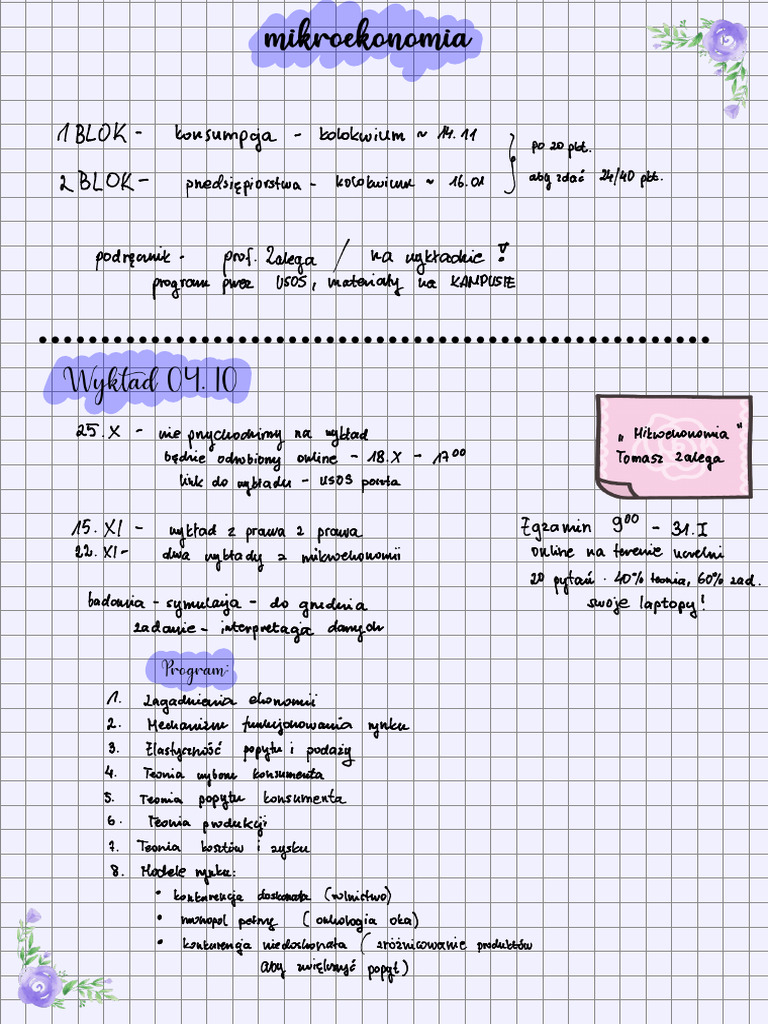 mikroekonomia
1 BLOK - konsumpcja - kolokwium ~ 14.11
po 20 pkt.
2 BLOK - przedsiębiorstwa - kolokwium ~ 16.01
aby zdać 24/40 pkt.
podręcznik - prof. Zalega / na wykładzie !
program przez USOS, materiały na KAMPUSIE
Wykład 04.10
25.X - nie przychodzimy na wykład
będzie odrobiony online - 18.X - 17⁰⁰
link do wykładu - USOS poczta
„Mikroekonomia”
Tomasz Zalega
15.XI - wykład z prawa z prawa
22.XI - dwa wykłady z mikroekonomii
Egzamin 9⁰⁰ - 31.I
online na terenie uczelni
20 pytań · 40% teoria, 60% zad.
swoje laptopy!
badania - symulacja - do grudnia
zadanie - interpretacja danych
Program:
1. Zagadnienia ekonomii
2. Mechanizm funkcjonowania rynku
3. Elastyczność popytu i podaży
4. Teoria wyboru konsumenta
5. Teoria popytu konsumenta
6. Teoria produkcji
7. Teoria kosztów i zysku
8. Modele rynku:
• konkurencja doskonała (rolnictwo)
• monopol pełny (onkologia oka)
• konkurencja niedoskonała (zróżnicowanie produktów
aby zwiększyć popyt)